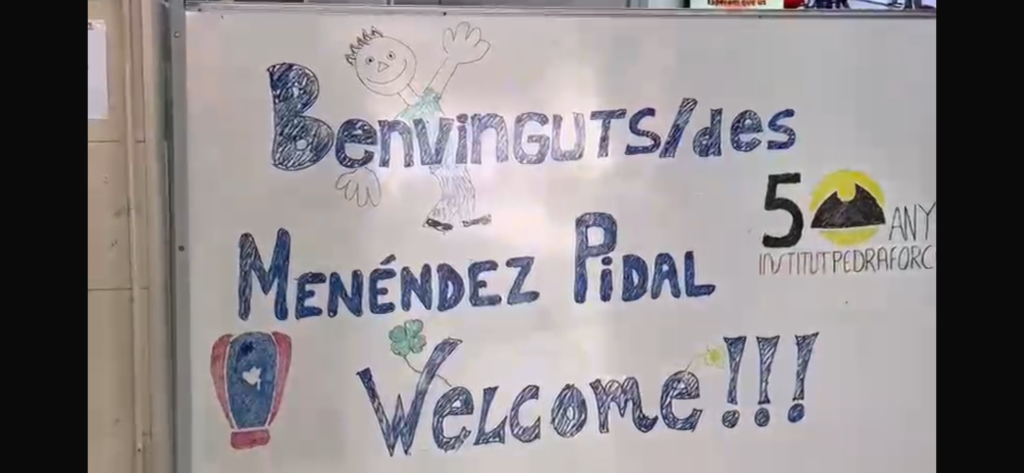 BenvinGUTS/des
50 ANY
INSTITUT PEDRAFORC
MENÉNDEZ PiDAL
WeLcome!!!